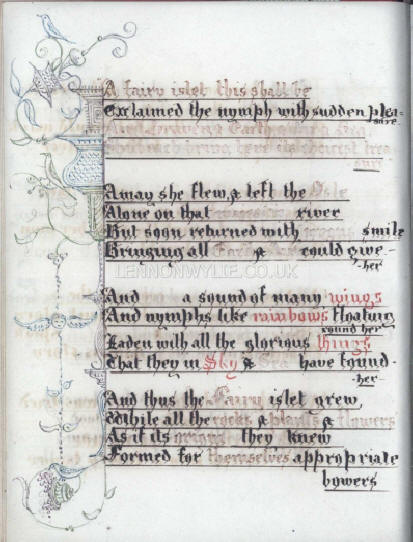 A fairy islet this shall be
Exclaimed the nymph with sudden plea-
sure.
Away she flew, & left the Isle
Alone on that river
But soon returned with smile
Bringing all & could give
-her
LENNONWYLIE.CO.UK
And a sound of many wings
And nymphs like rainbows floating
round her
Laden with all the glorious things
That they in Sky & Sea have found-
-her-
And thus the Fairy islet grew,
While all the rocks & plants & flowers
As if its they knew
Formed for themselves appropriate
bowers